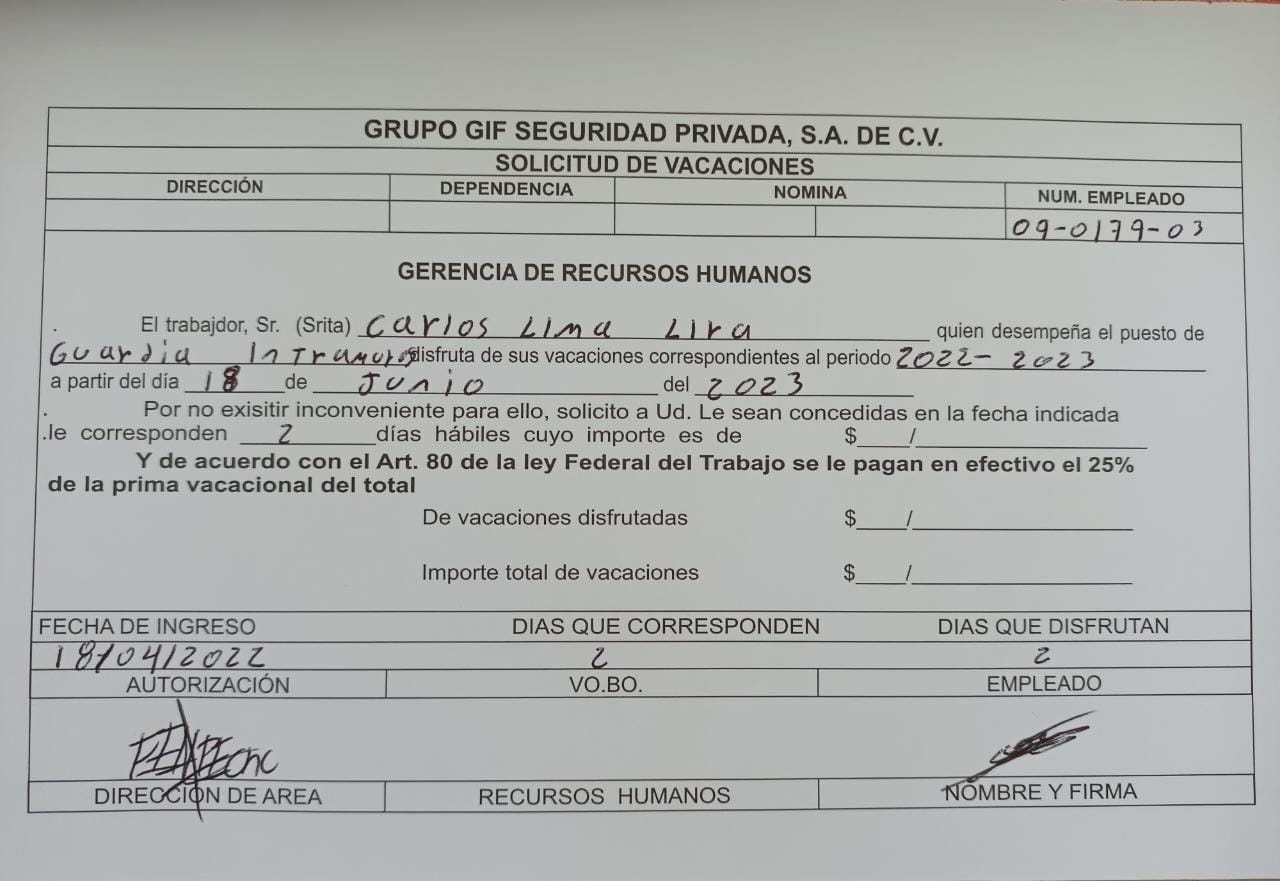 GRUPO GIF SEGURIDAD PRIVADA, S.A. DE C.V.
SOLICITUD DE VACACIONES
DIRECCIÓN DEPENDENCIA NOMINA NUM. EMPLEADO
09-0179-03
GERENCIA DE RECURSOS HUMANOS
. El trabajdor, Sr. (Srita) Carlos Lima Lira quien desempeña el puesto de
Guardia Intramuros disfruta de sus vacaciones correspondientes al periodo 2022-2023
a partir del día 18 de Junio del 2023
. Por no exisitir inconveniente para ello, solicito a Ud. Le sean concedidas en la fecha indicada
.le corresponden 2 días hábiles cuyo importe es de $____/____
Y de acuerdo con el Art. 80 de la ley Federal del Trabajo se le pagan en efectivo el 25%
de la prima vacacional del total
De vacaciones disfrutadas $____/____
Importe total de vacaciones $____/____
FECHA DE INGRESO DIAS QUE CORRESPONDEN DIAS QUE DISFRUTAN
18/04/2022 2 2
AUTORIZACIÓN VO.BO. EMPLEADO
DIRECCIÓN DE AREA RECURSOS HUMANOS NOMBRE Y FIRMA